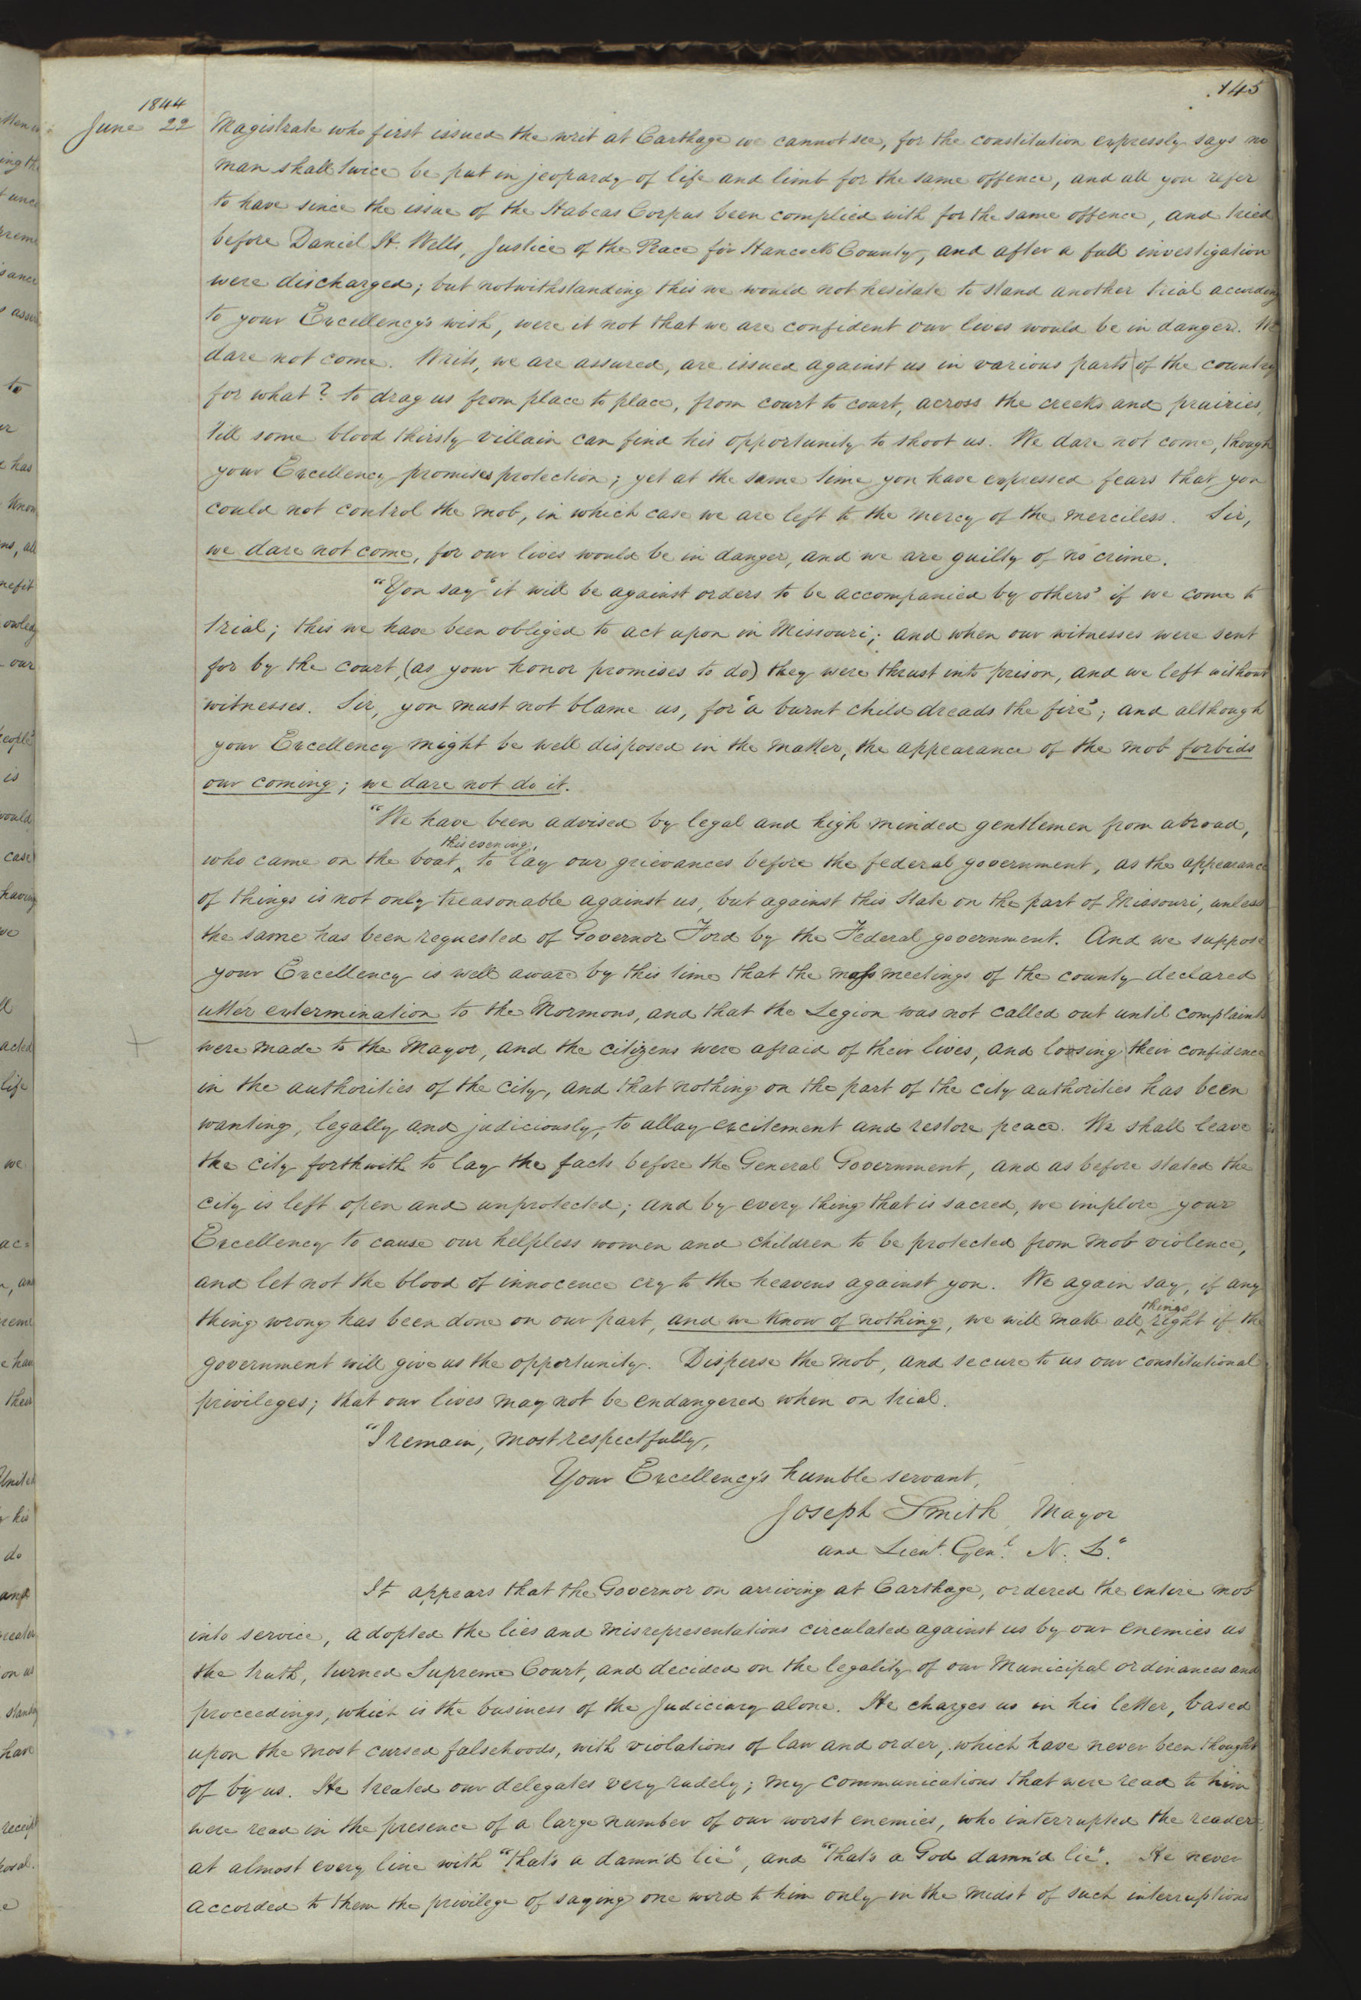 145
1844
June 22
Magistrate who first issued the writ at Carthage we cannot see, for the constitution expressly says no
man shall twice be put in jeopardy of life and limb for the same offence, and all you refer
to have since the issue of the Habeas Corpus been complied with for the same offence, and tried
before Daniel H. Wells, Justice of the Peace for Hancock County, and after a full investigation
were discharged; but notwithstanding this we would not hesitate to stand another trial according
to your Excellency's wish, were it not that we are confident our lives would be in danger. We
dare not come. Writs, we are assured, are issued against us in various parts of the country
for what? to drag us from place to place, from court to court, across the creeks and prairies,
till some blood thirsty villain can find his opportunity to shoot us. We dare not come, though
your Excellency promises protection; yet at the same time you have expressed fears that you
could not control the mob, in which case we are left to the mercy of the merciless. Sir,
we dare not come, for our lives would be in danger, and we are guilty of no crime.
"You say "it will be against orders to be accompanied by others" if we come to
trial; this we have been obliged to act upon in Missouri; and when our witnesses were sent
for by the court, (as your honor promises to do) they were thrust into prison, and we left without
witnesses. Sir, you must not blame us, for "a burnt child dreads the fire"; and although
your Excellency might be well disposed in the matter, the appearance of the mob forbids
our coming; we dare not do it.
"We have been advised by legal and high minded gentlemen from abroad,
who came on the boat this evening, to lay our grievances before the federal government, as the appearance
of things is not only treasonable against us, but against this State on the part of Missouri, unless
the same has been requested of Governor Ford by the Federal government. And we suppose
your Excellency is well aware by this time that the mass meetings of the county declared
utter extermination to the Mormons, and that the Legion was not called out until complaints
were made to the Mayor, and the citizens were afraid of their lives, and loosing their confidence
in the authorities of the city, and that nothing on the part of the city authorities has been
wanting, legally and judiciously, to allay excitement and restore peace. We shall leave
the city forthwith to lay the facts before the General Government, and as before stated the
city is left open and unprotected; and by every thing that is sacred, we implore your
Excellency to cause our helpless women and children to be protected from mob violence,
and let not the blood of innocence cry to the heavens against you. We again say, if any
thing wrong has been done on our part, and we know of nothing, we will make all things right if the
government will give us the opportunity. Disperse the mob, and secure to us our constitutional
privileges; that our lives may not be endangered when on trial.
"I remain, most respectfully,
Your Excellency's humble servant,
Joseph Smith, Mayor
and Lieut. Genl. N. L."
It appears that the Governor on arriving at Carthage, ordered the entire mob
into service, adopted the lies and misrepresentations circulated against us by our enemies as
the truth, turned Supreme Court, and decided on the legality of our Municipal ordinances and
proceedings, which is the business of the Judiciary alone. He charges us in his letter, based
upon the most cursed falsehoods, with violations of law and order, which have never been thought
of by us. He treated our delegates very rudely; my communications that were read to him
were read in the presence of a large number of our worst enemies, who interrupted the reader
at almost every line with "that's a damn'd lie", and "that's a God damn'd lie". He never
accorded to them the privilege of saying one word to him only in the midst of such interruptions